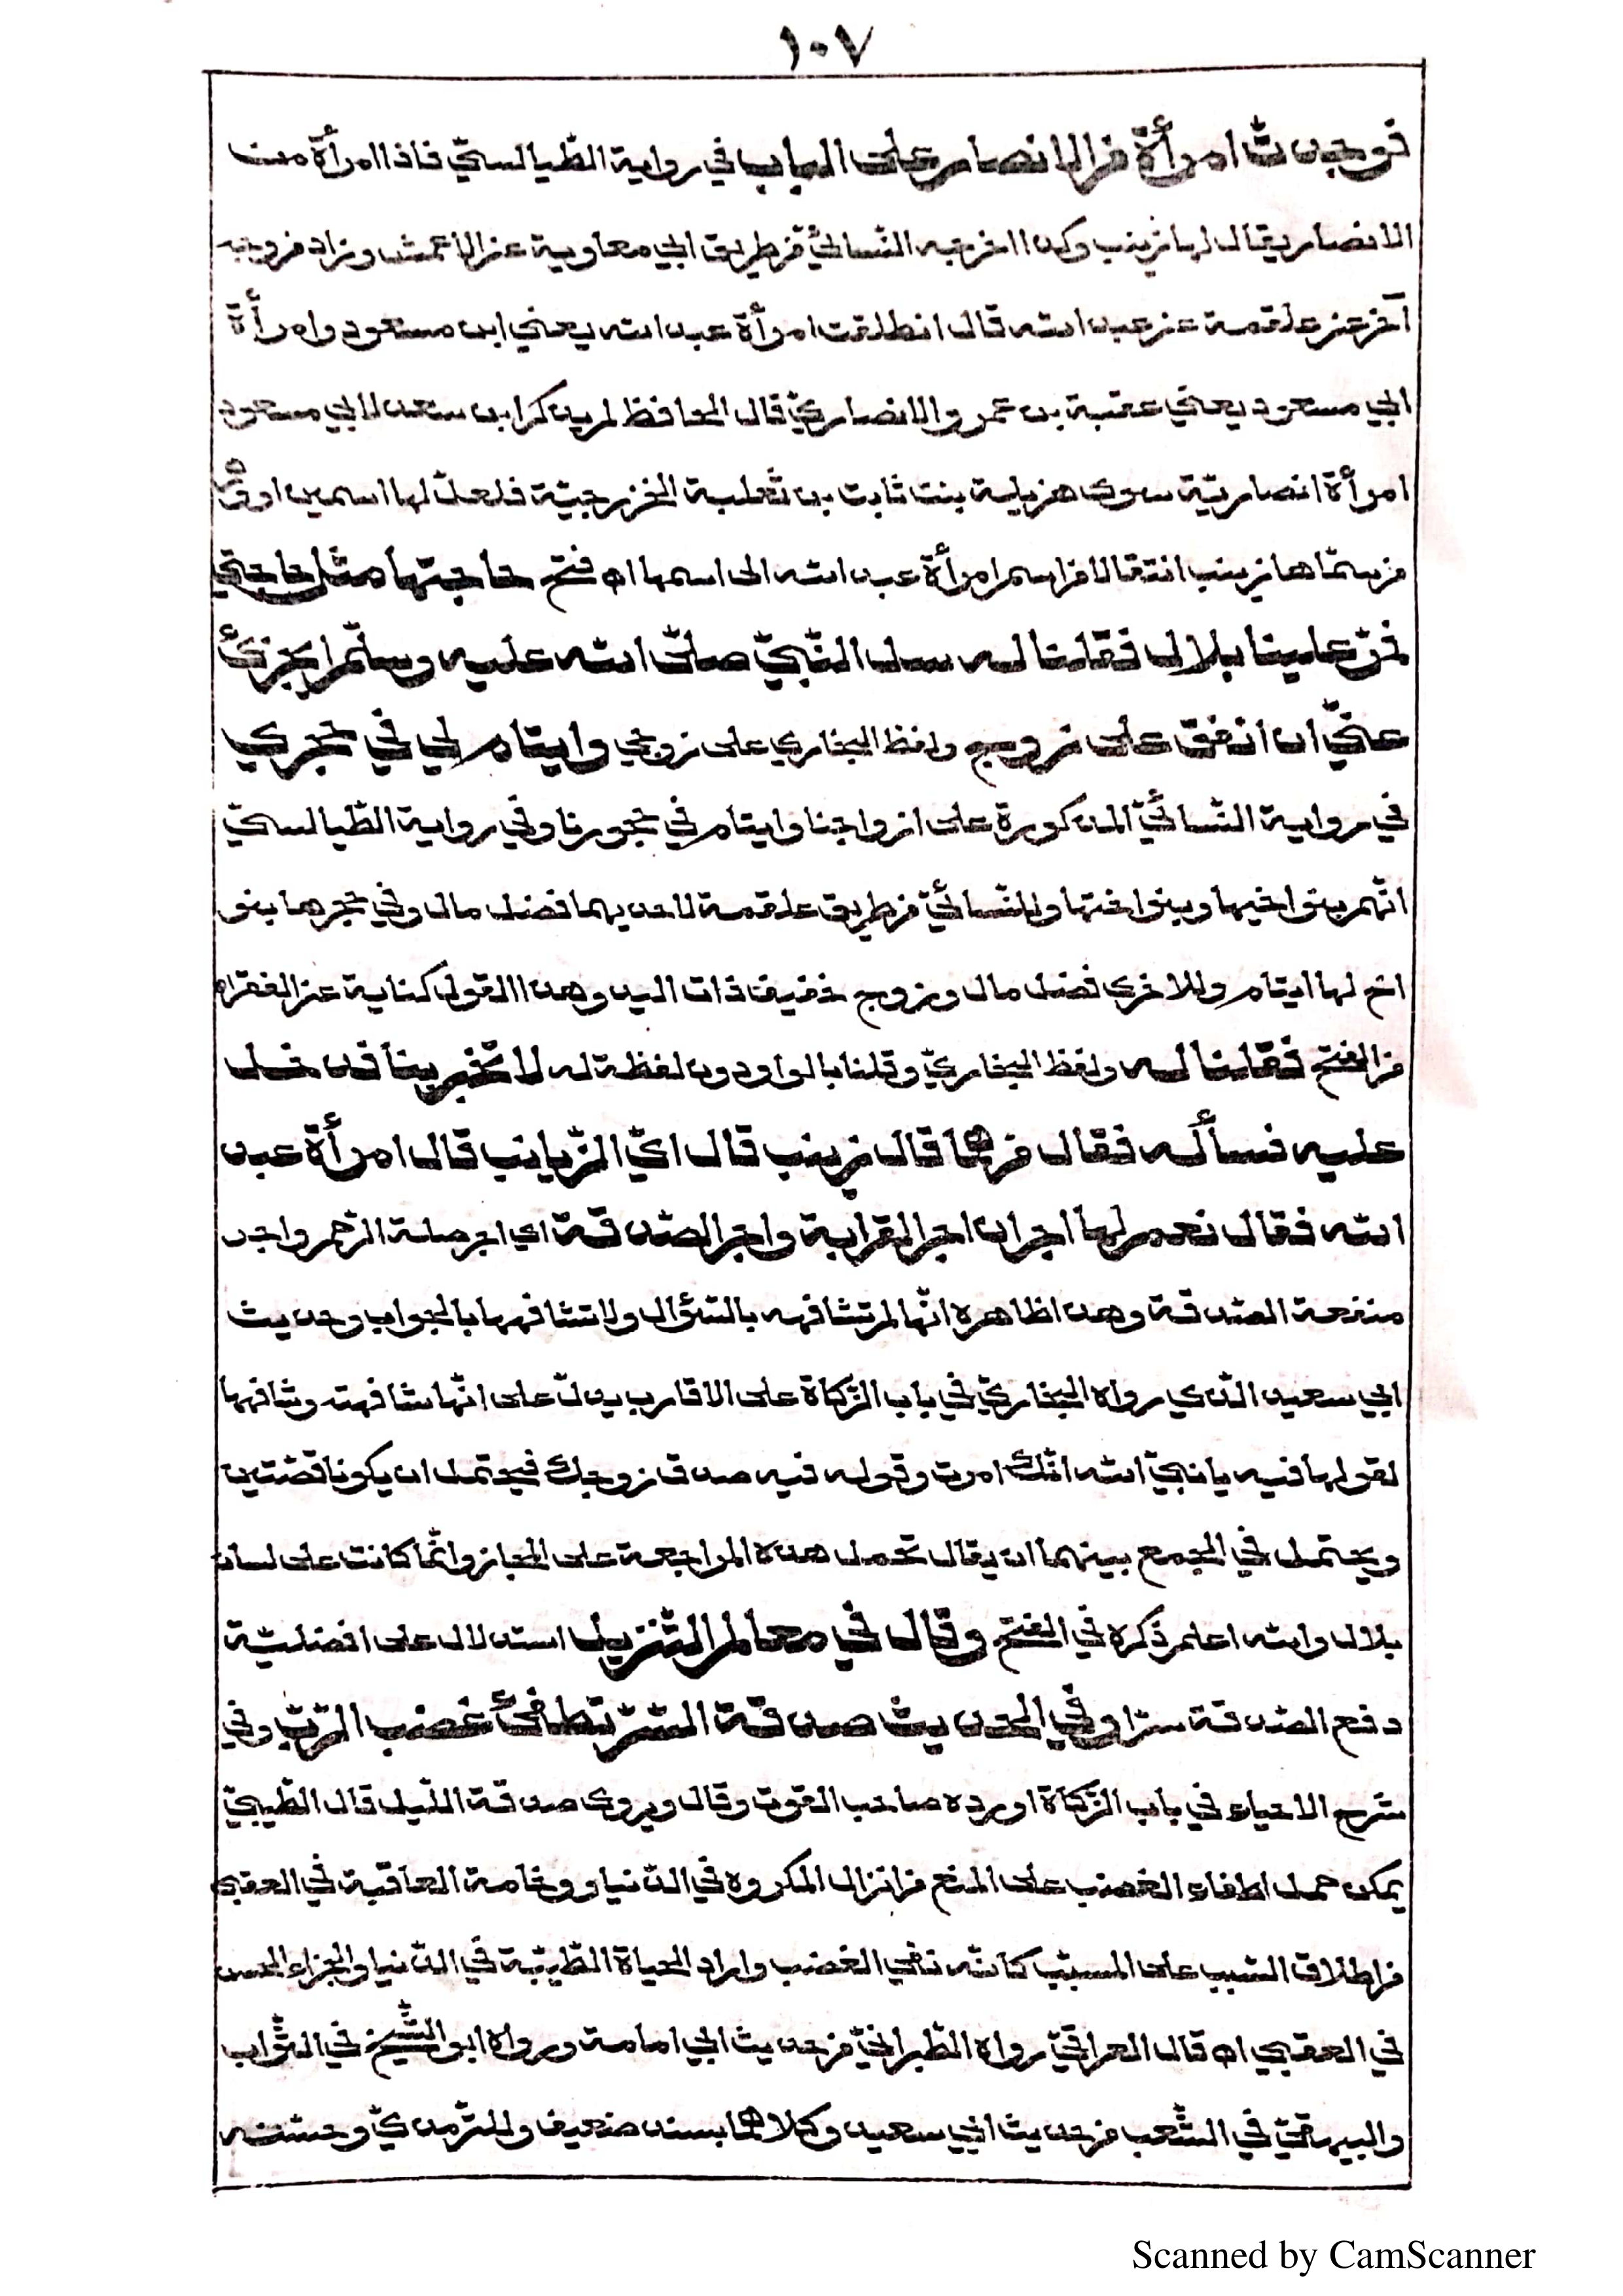 ١٠٧
فوجدت امرأة من الانصار على الباب في رواية الطّيالسيّ فاذا امرأة من
الانصار يقال لها زينب وكذا اخرجه النّسائيّ من طريق ابي معاوية عن الاعمش وزاد من وجه
آخر عن علقمة عن عبد الله قال انطلقت امرأة عبد الله يعني ابن مسعود وامرأة
ابي مسعود يعني عقبة بن عمرو الانصاريّ قال الحافظ لم يذكر ابن سعد لابي مسعود
امرأة انصاريّة سوى هزيلة بنت ثابت بن ثعلبة الخزرجيّة فلعلّ لها اسمين او وهم
من سمّاها زينب انتقالا من اسم امرأة عبد الله الى اسمها اه فتح حاجتها مثل حاجتي
فمرّ علينا بلال فقلنا له سل النّبيّ صلّى الله عليه وسلّم ايجزئ
عنّي ان انفق على زوجي ولفظ البخاري على زوجي وايتام لي في حجري
في رواية النّسائيّ المذكورة على ازواجنا وايتام في حجورنا وفي رواية الطّيالسيّ
انّهم بنو اخيها وبنو اختها وللنّسائيّ من طريق علقمة لاحديهما فضل مال وفي حجرها بنو
اخ لها ايتام وللاخرى فضل مال وزوج خفيف ذات اليد وهذا القول كناية عن الفقر اه
من الفتح فقلنا له ولفظ البخاريّ وقلنا بالواو دون لفظة له لا تخبر بنا فدخل
عليه فسأله فقال من هما قال زينب قال ايّ الزّيانب قال امرأة عبد
الله فقال نعم لها اجران اجر القرابة واجر الصّدقة اي اجر صلة الرّحم واجر
منفعة الصّدقة وهذا ظاهره انّها لم تشافهه بالسّؤال ولا تشافهها بالجواب وحديث
ابي سعيد الّذي رواه البخاريّ في باب الزّكاة على الاقارب يدلّ على انّها شافهته وشافهها
لقولها فيه يا نبيّ الله انّك امرت وقوله فيه صدق زوجك فيحتمل ان يكونا قضّتين
ويحتمل في الجمع بينهما ان يقال تحمل هذه المراجعة على المجاز وانّما كانت على لسان
بلال والله اعلم ذكره في الفتح وقال في معالم التّنزيل استدلال على افضليّة
دفع الصّدقة سرّا وفي الحديث صدقة السّرّ تطفئ غضب الرّبّ وفي
شرح الاحياء في باب الزّكاة اورده صاحب القوت وقال ويروى صدقة اللّيل قال الطّيبيّ
يمكن حمل اطفاء الغضب على المنع من انزال المكروه في الدّنيا ووخامة العاقبة في العقبى
من اطلاق السّبب على المسبّب كانّه نفي الغضب واراد الحياة الطّيّبة في الدّنيا والجزاء الحسن
في العقبى اه قال العراقيّ رواه الطّبرانيّ من حديث ابي امامة ورواه ابو الشّيخ في الثّواب
والبيهقيّ في الشّعب من حديث ابي سعيد وكلاهما بسند ضعيف وللتّرمذيّ وحسّنه
Scanned by CamScanner